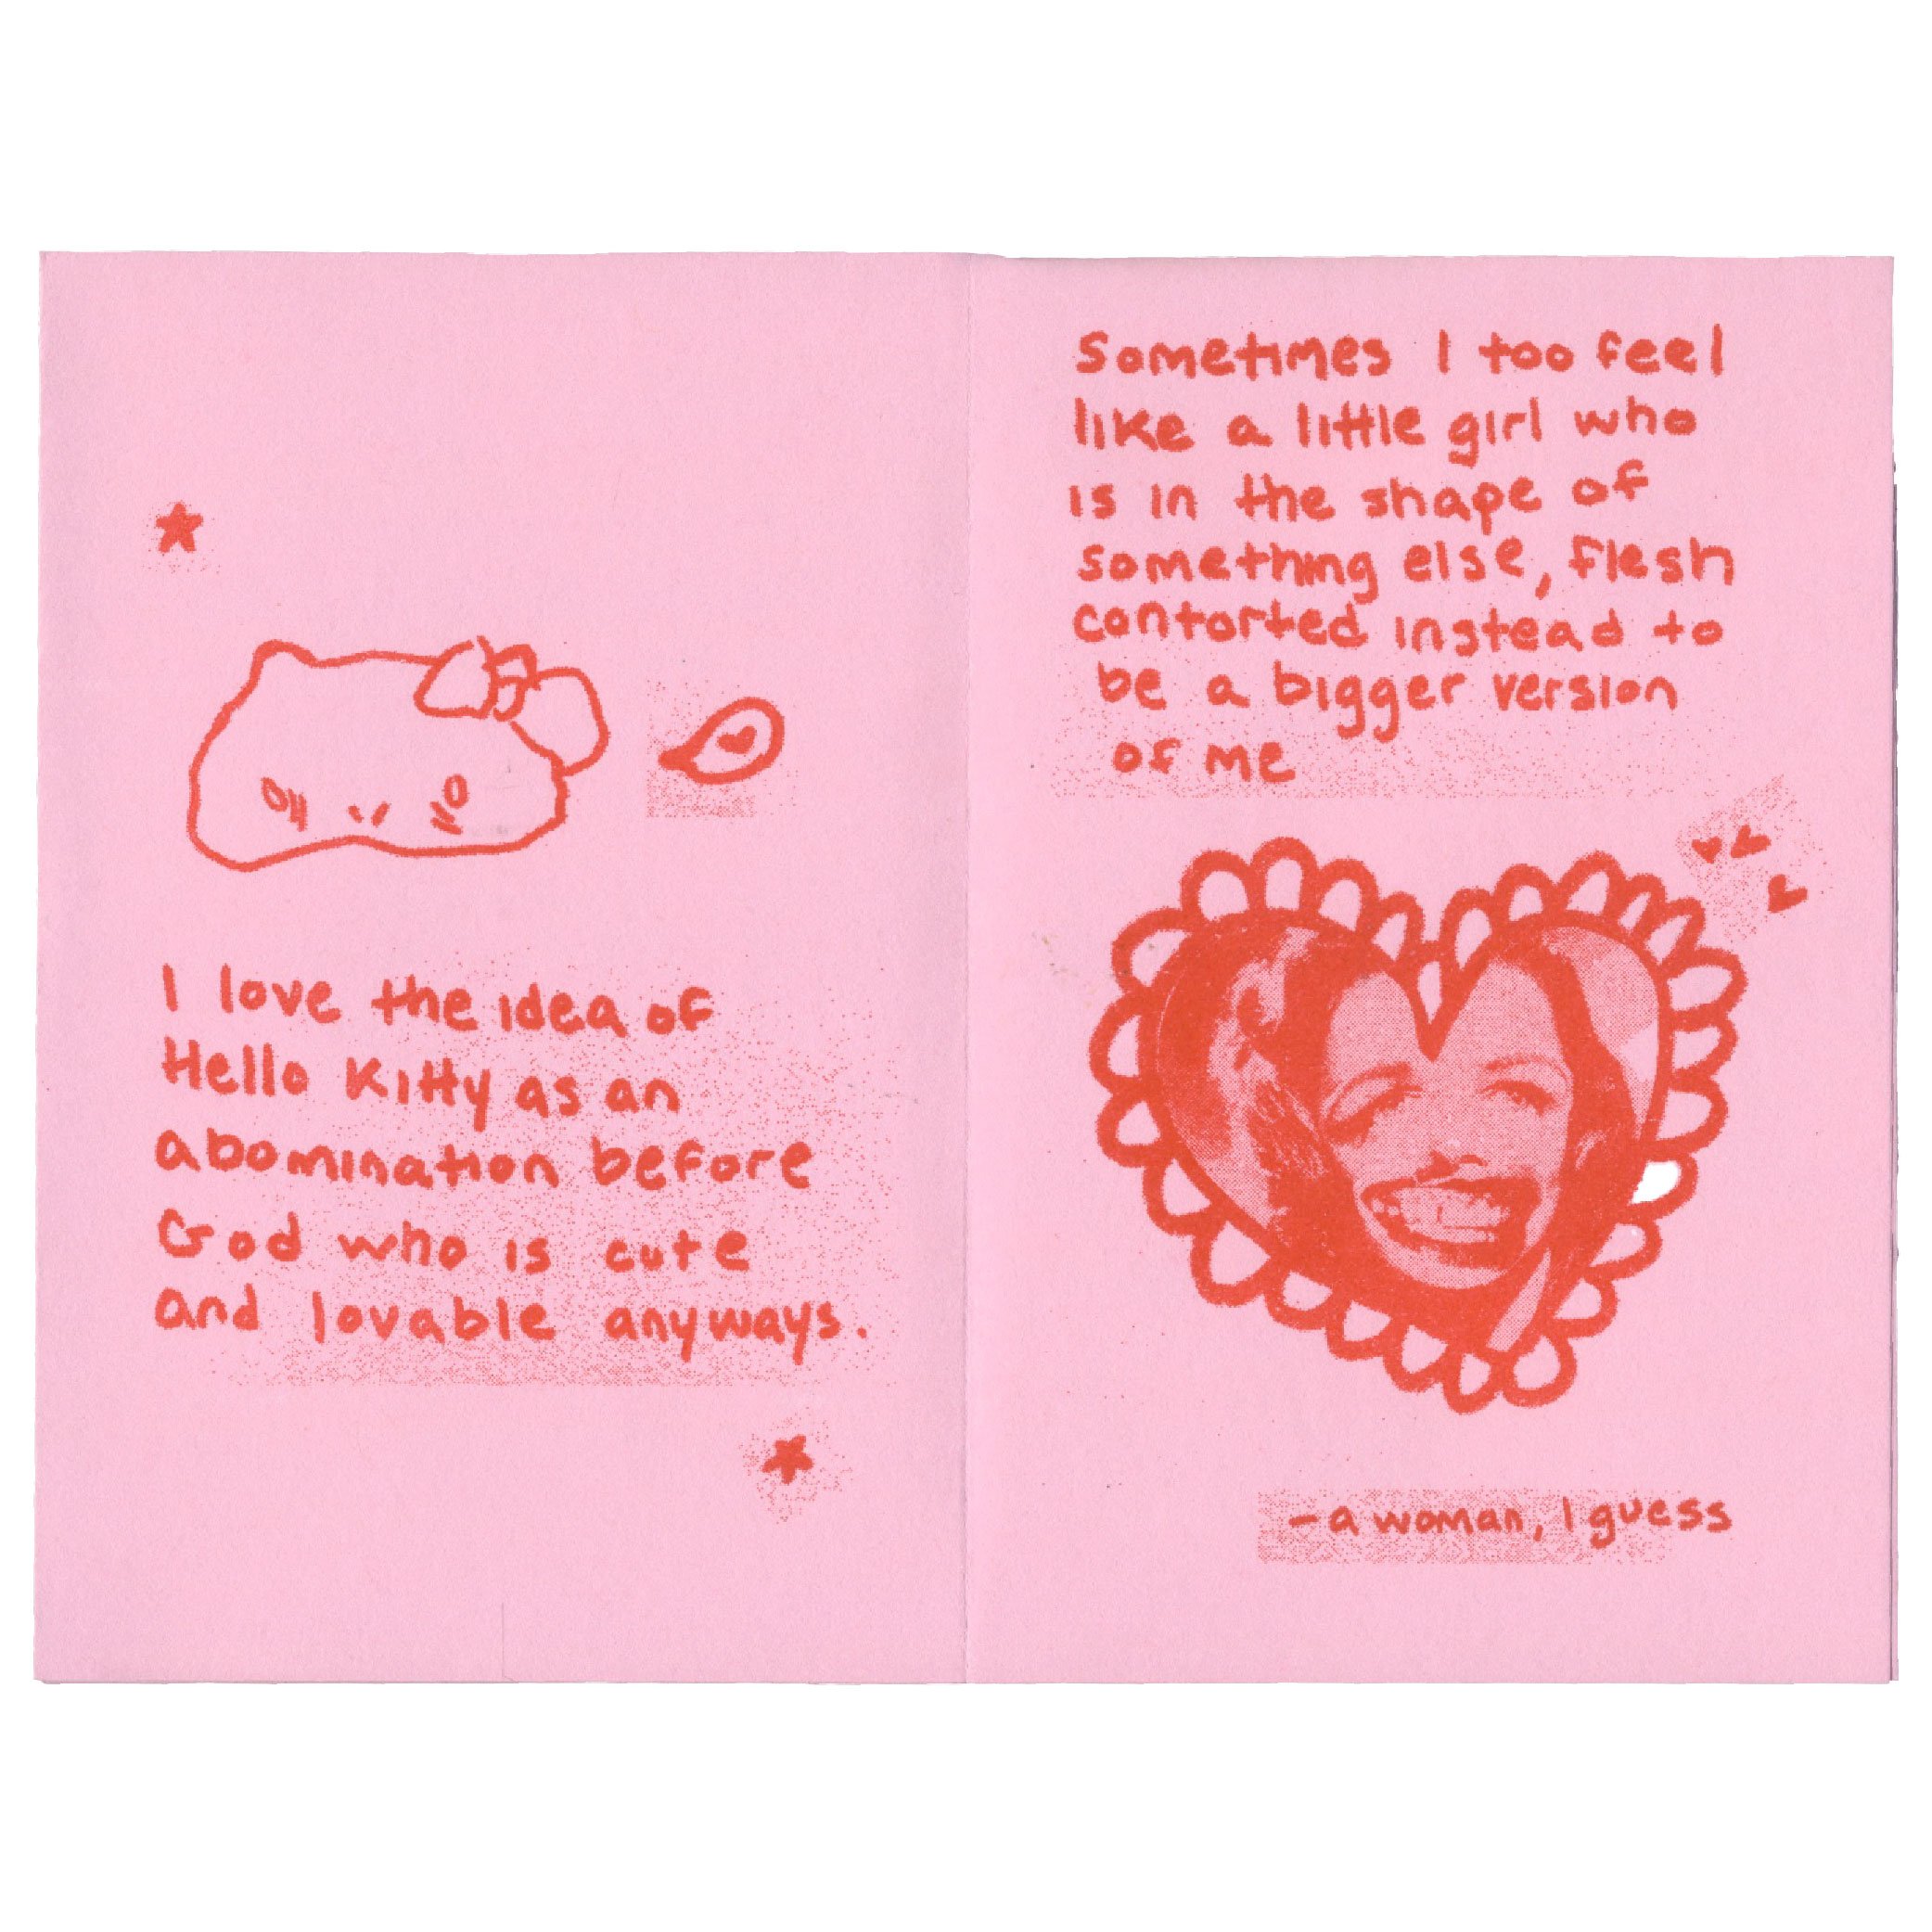 I love the idea of
Hello Kitty as an
abomination before
God who is cute
and lovable anyways.
Sometimes I too feel
like a little girl who
is in the shape of
something else, flesh
contorted instead to
be a bigger version
of me
-a woman, I guess